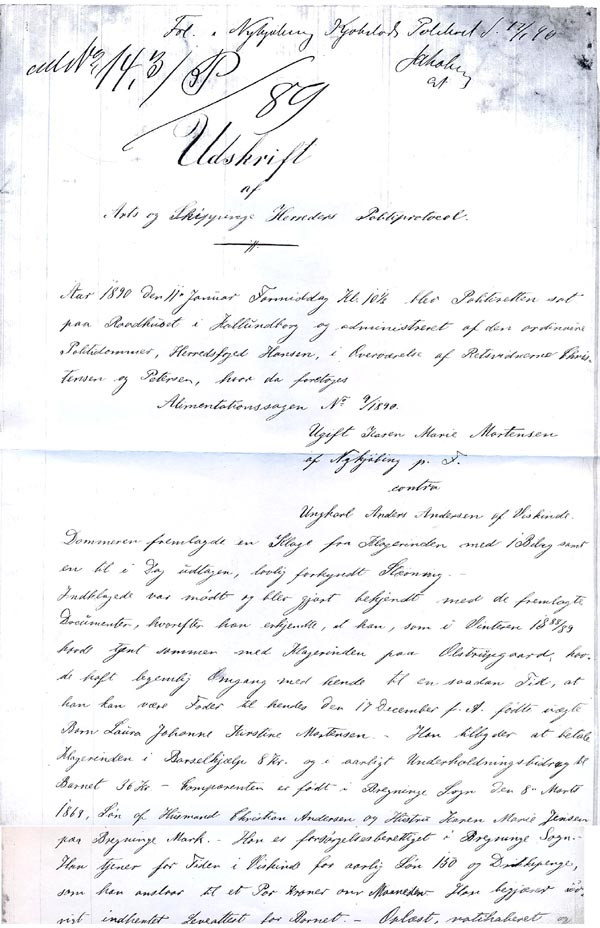 Fol. i Nykjøbing Kjøbstads Politiret d. 17/1 90
Jakobsen
cst
ad No 14, 3/P/89
Udskrift
af
Arts og Skippinge Herreders Politiprotocol.
Aar 1890 den 11' Januar Formiddag Kl. 10½ blev Politiretten sat
paa Raadhuset i Kallundborg og administreret af den ordinaire
Politidommer, Herredsfoged Hansen, i Overværelse af Retsvidnerne Chris-
tensen og Petersen, hvor da foretoges
Alimentationssagen No 9/1890.
Ugift Karen Marie Mortensen
af Nykjøbing p. F.
contra
Ungkarl Anders Andersen af Viskinde.
Dommeren fremlagde en Klage fra Klagerinden med 1 Bilag samt
en til i Dag udtagen, lovlig forkyndt Stævning. –
Indklagede var mødt og blev gjort bekjendt med de fremlagte
Documenter, hvorefter han erkjendte, at han, som i Vinteren 1888/89
havde tjent sammen med Klagerinden paa Olstrupgaard, hav-
de haft legemlig Omgang med hende til en saadan Tid, at
han kan være Fader til hendes den 17 December f. A. fødte uægte
Barn Laura Johanne Kirstine Mortensen. – Han tilbyder at betale
Klagerinden i Barselhjælp 8 Kr. og i aarligt Underholdningsbidrag til
Barnet 36 Kr. – Comparenten er født i Bregninge Sogn den 8' Marts
1869, Søn af Huusmand Christian Andersen og Hustru Karen Marie Jensen
paa Bregninge Mark. – Han er forsørgelsesberettiget i Bregninge Sogn. –
Han tjener for Tiden i Viskinde for aarlig Løn 150 og Drikkepenge,
som han anslaar til et Par Kroner om Maaneden. Han begjærer
vist indhentet Leveattest for Barnet. – Oplæst, ratihaberet og